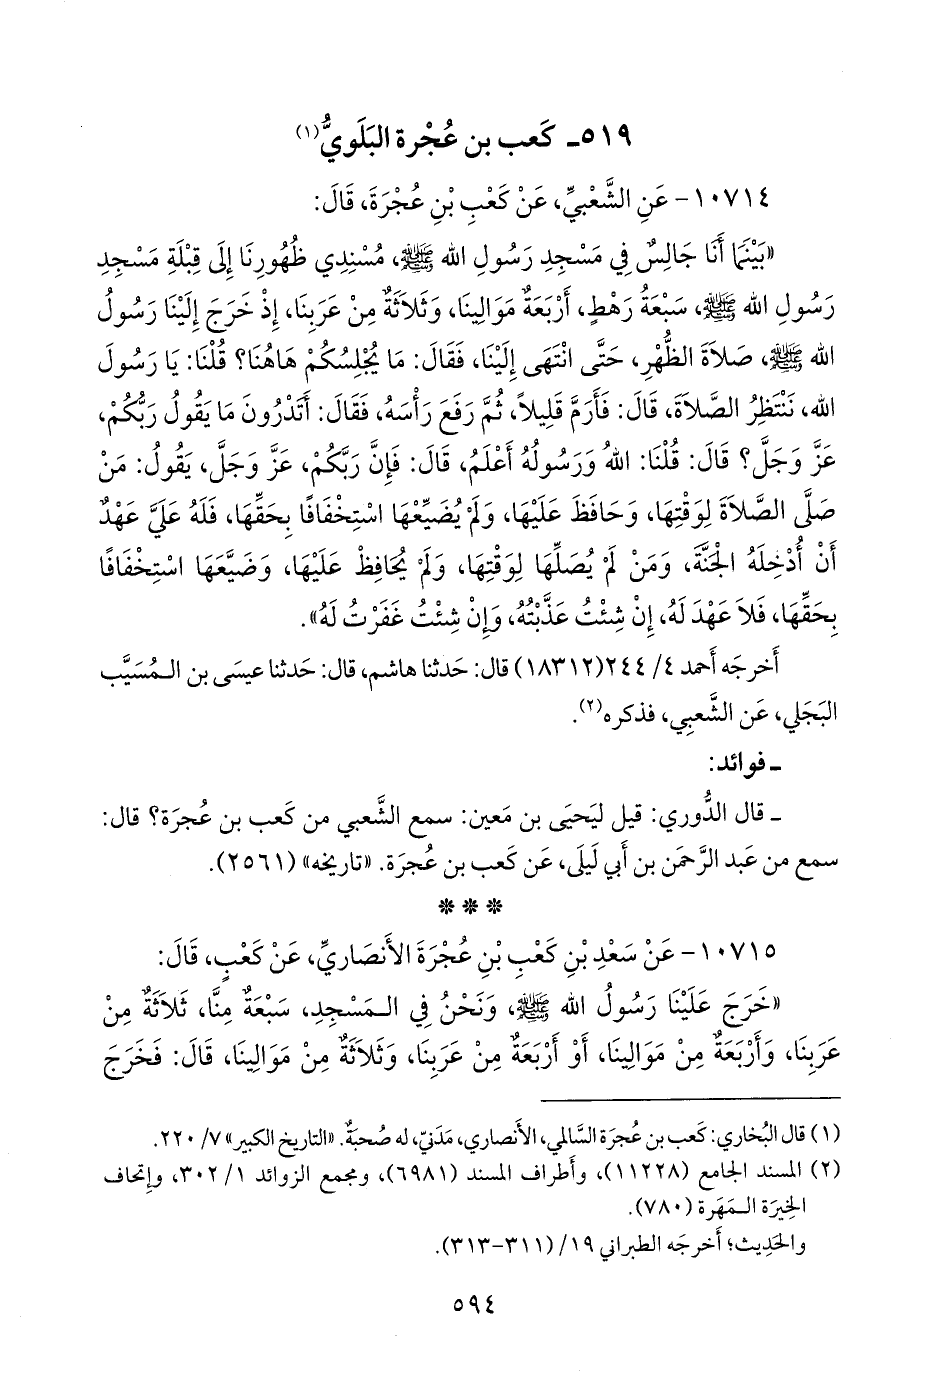 ٥١٩ـ كَعب بن عُجْرة البَلَويُّ(١)
١٠٧١٤ - عَنِ الشَّعْبِيِّ، عَنْ كَعْبِ بْنِ عُجْرَةَ، قَالَ:
«بَيْنَمَا أَنَا جَالِسٌ فِي مَسْجِدِ رَسُولِ الله ﷺ، مُسْنِدِي ظُهُورِنَا إِلَى قِبْلَةِ مَسْجِدِ
رَسُولِ الله ﷺ، سَبْعَةُ رَهْطٍ، أَرْبَعَةٌ مَوَالِينَا، وَثَلَاثَةٌ مِنْ عَرَبِنَا، إِذْ خَرَجَ إِلَيْنَا رَسُولُ
الله ﷺ، صَلاَةَ الظُّهْرِ، حَتَّى انْتَهَى إِلَيْنَا، فَقَالَ: مَا يُجْلِسُكُمْ هَاهُنَا؟ قُلْنَا: يَا رَسُولَ
الله، نَنْتَظِرُ الصَّلاَةَ، قَالَ: فَأَرَمَّ قَلِيلاً، ثُمَّ رَفَعَ رَأْسَهُ، فَقَالَ: أَتَدْرُونَ مَا يَقُولُ رَبُّكُمْ،
عَزَّ وَجَلَّ؟ قَالَ: قُلْنَا: اللهُ وَرَسُولُهُ أَعْلَمُ، قَالَ: فَإِنَّ رَبَّكُمْ، عَزَّ وَجَلَّ، يَقُولُ: مَنْ
صَلَّى الصَّلاَةَ لِوَقْتِهَا، وَحَافَظَ عَلَيْهَا، وَلَمْ يُضَيِّعْهَا اسْتِخْفَافًا بِحَقِّهَا، فَلَهُ عَلَيَّ عَهْدٌ
أَنْ أُدْخِلَهُ الْجَنَّةَ، وَمَنْ لَمْ يُصَلِّهَا لِوَقْتِهَا، وَلَمْ يُحَافِظْ عَلَيْهَا، وَضَيَّعَهَا اسْتِخْفَافًا
بِحَقِّهَا، فَلاَ عَهْدَ لَهُ، إِنْ شِئْتُ عَذَّبْتُهُ، وَإِنْ شِئْتُ غَفَرْتُ لَهُ».
أَخرجَه أَحمد ٤/ ٢٤٤(١٨٣١٢) قال: حَدثنا هاشم، قال: حَدثنا عيسَى بن المُسَيَّب
البَجَلي، عَن الشَّعبِي، فذكره(٢).
ـ فوائد:
ـ قال الدُّوري: قيل ليَحيَى بن مَعين: سمع الشَّعبي من كَعب بن عُجرَة؟ قال:
سمع من عَبد الرَّحمَن بن أَبي لَيلَى، عَن كَعب بن عُجرَة. «تاريخه» (٢٥٦١).
***
١٠٧١٥ - عَنْ سَعْدِ بْنِ كَعْبِ بْنِ عُجْرَةَ الأَنصَارِيِّ، عَنْ كَعْبٍ، قَالَ:
«خَرَجَ عَلَيْنَا رَسُولُ الله ﷺ، وَنَحْنُ فِي المَسْجِدِ، سَبْعَةٌ مِنَّا، ثَلاَثَةٌ مِنْ
عَرَبِنَا، وَأَرْبَعَةٌ مِنْ مَوَالِينَا، أَوْ أَرْبَعَةٌ مِنْ عَرَبِنَا، وَثَلاَثَةٌ مِنْ مَوَالِينَا، قَالَ: فَخَرَجَ
(١) قال البُخاري: كَعب بن عُجرَة السَّالمي، الأَنصاري، مَدَنيّ، له صُحبَةٌ. «التاريخ الكبير» ٧/ ٢٢٠.
(٢) المسند الجامع (١١٢٢٨)، وأَطراف المسند (٦٩٨١)، ومجمع الزوائد ١/ ٣٠٢، وإِتحاف
الخِيرَة المَهَرة (٧٨٠).
والحَدِيث؛ أَخرجَه الطبراني ١٩/ (٣١١-٣١٣).
٥٩٤